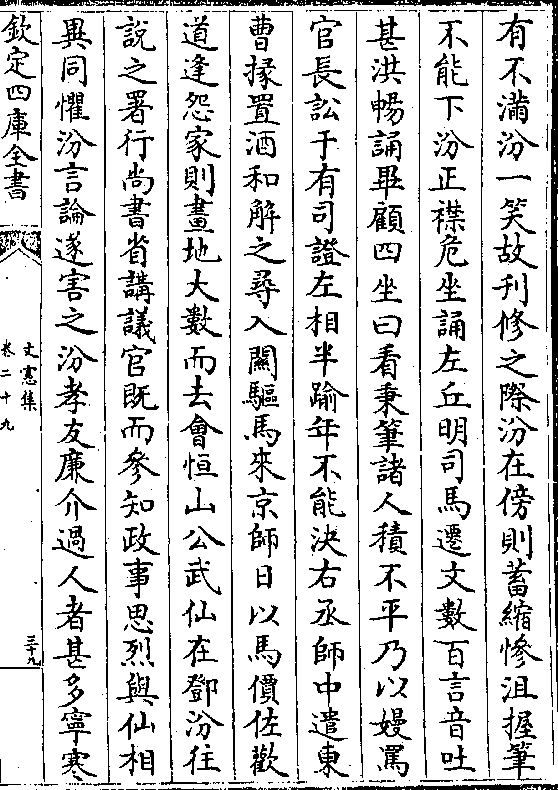 有不滿汾一笑故刋修之際汾在傍則蓄縮慘沮握筆
不能下汾正襟危坐誦左丘明司馬遷文數百言音吐
甚洪暢誦畢顧四坐曰看秉筆諸人積不平乃以嫚罵
官長訟于有司證左相半踰年不能決右丞師中遣東
曹掾置酒和解之尋入關驅馬來京師日以馬價佐歡
道逢怨家則畫地大數而去會恒山公武仙在鄧汾往
説之署行尚書省講議官既而參知政事思烈與仙相
異同懼汾言論遂害之汾孝友廉介過人者甚多寧寒
欽定四庫全書
文憲集
卷二十九
三十九